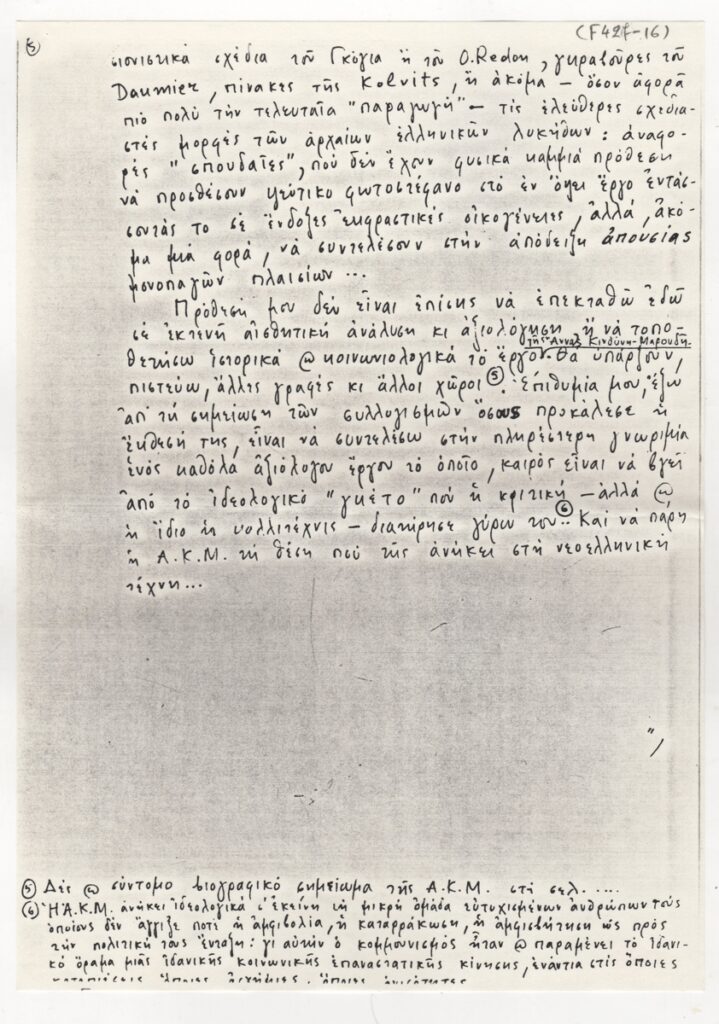 (F427-16)
5
σιονιστικά σχέδια τοῦ Γκόγια ἤ τοῦ O.Redon, γκραβοῦρες τοῦ
Daumier, πίνακες τῆς Kolvits, ἤ ἀκόμα – ὅσον ἀφορᾶ
πιό πολύ τήν τελευταία "παραγωγή" – τίς ἐλεύθερες σχεδια-
στές μορφές τῶν ἀρχαίων ἑλληνικῶν λυκήθων: ἀναφο-
ρές "σπουδαῖες", πού δέν ἔχουν φυσικά καμμιά πρόθεση
νά προσθέσουν ψεύτικο φωτοστέφανο στό ἐν ὄψει ἔργο ἐντάσ-
σοντάς το σέ ἔνδοξες ἐκφραστικές οἰκογένειες, ἀλλά, ἀκό-
μα μιά φορά, νά συντελέσουν στήν ἀπόδειξη ἀπουσίας
μονοπαγῶν πλαισίων...
Πρόθεσή μου δέν εἶναι ἐπίσης νά ἐπεκταθῶ ἐδῶ
σέ ἐκτενή αἰσθητική ἀνάλυση κι ἀξιολόγηση ἤ νά τοπο-
τῆς Ἄννας Κινδύνη-Μαρουδῆ.
θετήσω ἱστορικά @ κοινωνιολογικά τό ἔργο. Θά ὑπάρξουν,
πιστεύω, ἄλλες γραφές κι ἄλλοι χῶροι (5). Ἐπιθυμία μου, ἔξω
ἀπ' τή σημείωση τῶν συλλογισμῶν ὅσους προκάλεσε ἡ
ἔκθεσή της, εἶναι νά συντελέσω στήν πληρέστερη γνωριμία
ἑνός καθόλα ἀξιόλογου ἔργου τό ὁποῖο, καιρός εἶναι νά βγεῖ
ἀπό τό ἰδεολογικό "γκέτο" πού ἡ κριτική – ἀλλά @
ἡ ἴδια ἡ καλλιτέχνις – διατήρησε γύρω του (6).. Καί νά πάρη
ἡ Α.Κ.Μ. τή θέση πού τῆς ἀνήκει στή νεοελληνική
τέχνη...
(5) Δές @ σύντομο βιογραφικό σημείωμα τῆς Α.Κ.Μ. στή σελ. .....
(6) Ἡ Α.Κ.Μ. ἀνήκει ἰδεολογικά σ' ἐκείνη τή μικρή ὁμάδα εὐτυχισμένων ἀνθρώπων τούς
ὁποίους δέν ἄγγιξε ποτέ ἡ ἀμφιβολία, ἡ καταρράκωση, ἡ ἀμφισβήτηση ὡς πρός
τήν πολιτική τους ἔνταξη: γι αὐτήν ὁ κομμουνισμός ἦταν @ παραμένει τό ἰδανι-
κό ὅραμα μιᾶς ἰδανικῆς κοινωνικῆς ἐπαναστατικῆς κίνησης, ἐνάντια στίς ὅποιες